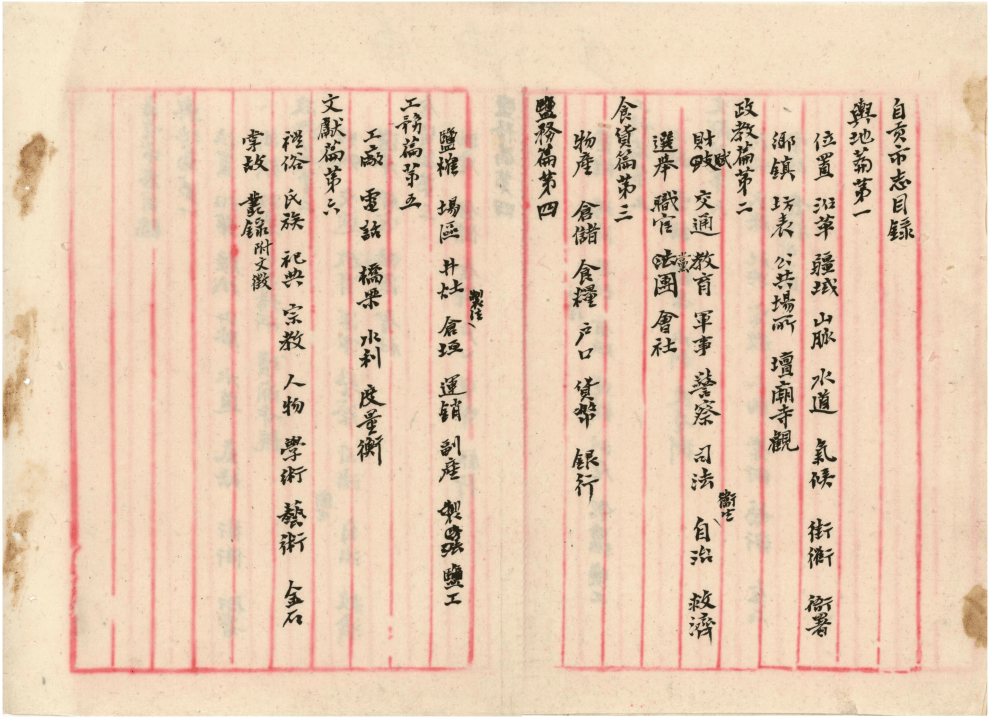 自贡市志目録
輿地篇第一
位置 沿革 疆域 山脉 水道 氣候 街衢 衙署
鄉鎮 坊表 公共場所 壇廟寺觀
政教篇第二
財賦 交通 教育 軍事 警察 司法 衞生 自治 救濟
選舉 職官 黨團 會社
食貨篇第三
物產 倉儲 食糧 户口 貨幣 銀行
鹽務篇第四
鹽榷 場區 井灶 製法 倉垣 運銷 副產 鹽工
工務篇第五
工廠 電話 橋梁 水利 度量衡
文獻篇第六
禮俗 氏族 祀典 宗教 人物 學術 藝術 金石
掌故 叢録附文徵